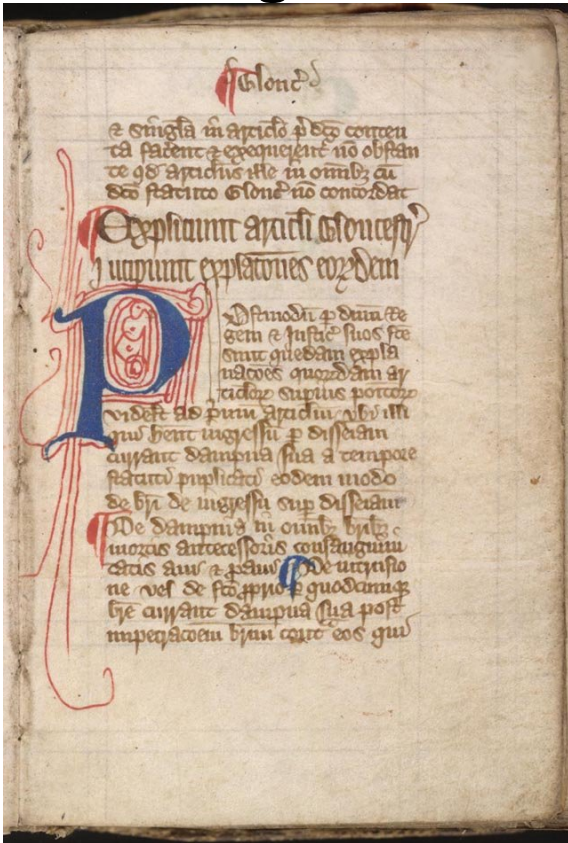 ¶ Glouc̄
⁊ singl̄a in articl̄o p̄dc̄o conten
ta facent ⁊ exequerent̄ nō obstan
te qd̄ articlus ille in omībȝ cū
dc̄o statuto Glouc̄ nō concordat
¶ Expliciunt articl̄i Gloucestr̄
Incipiunt expl̄atōnes eorꝝdem
Postmodū p dūm Re
gem ⁊ Justic̄ suos fc̄e
sunt quedam expla
nacōes quorꝝdam ar
ticlorꝝ supius poitorꝝ
videlt̄ ad p̄mū articlm̄ vbi illi
qui hent ingressū p disseiam
currant dampna sua a tempore
statuti puplicati eodem modo
de br̄i de ingressu sup disseiam
¶ De dampnis in omībȝ bribȝ
mortis antecessoris consanguini
tatis aui ⁊ p̄aui ¶ De intrusio
ne vel de fc̄o pprio p quodcumqȝ
br̄e currant dampna sua post
impetracōem br̄iū cont̄ eos qui